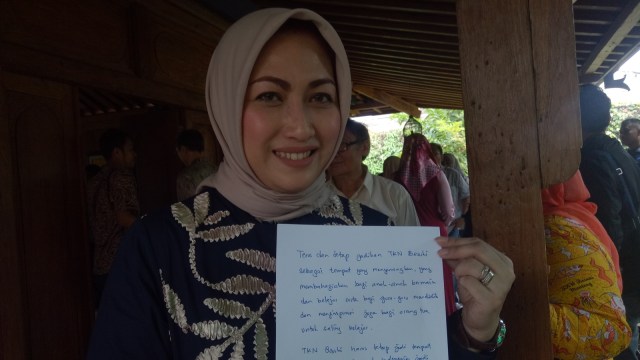 Terus dan tetap jadikan TKN Bestif
sebagai tempat yang menyenangkan, yang
membahagiakan bagi anak untuk bermain
dan belajar serta bagi guru-guru mendidik
dan menginspirasi juga bagi orang tua
untuk saling belajar.
TKN kami tetap jadi tempat